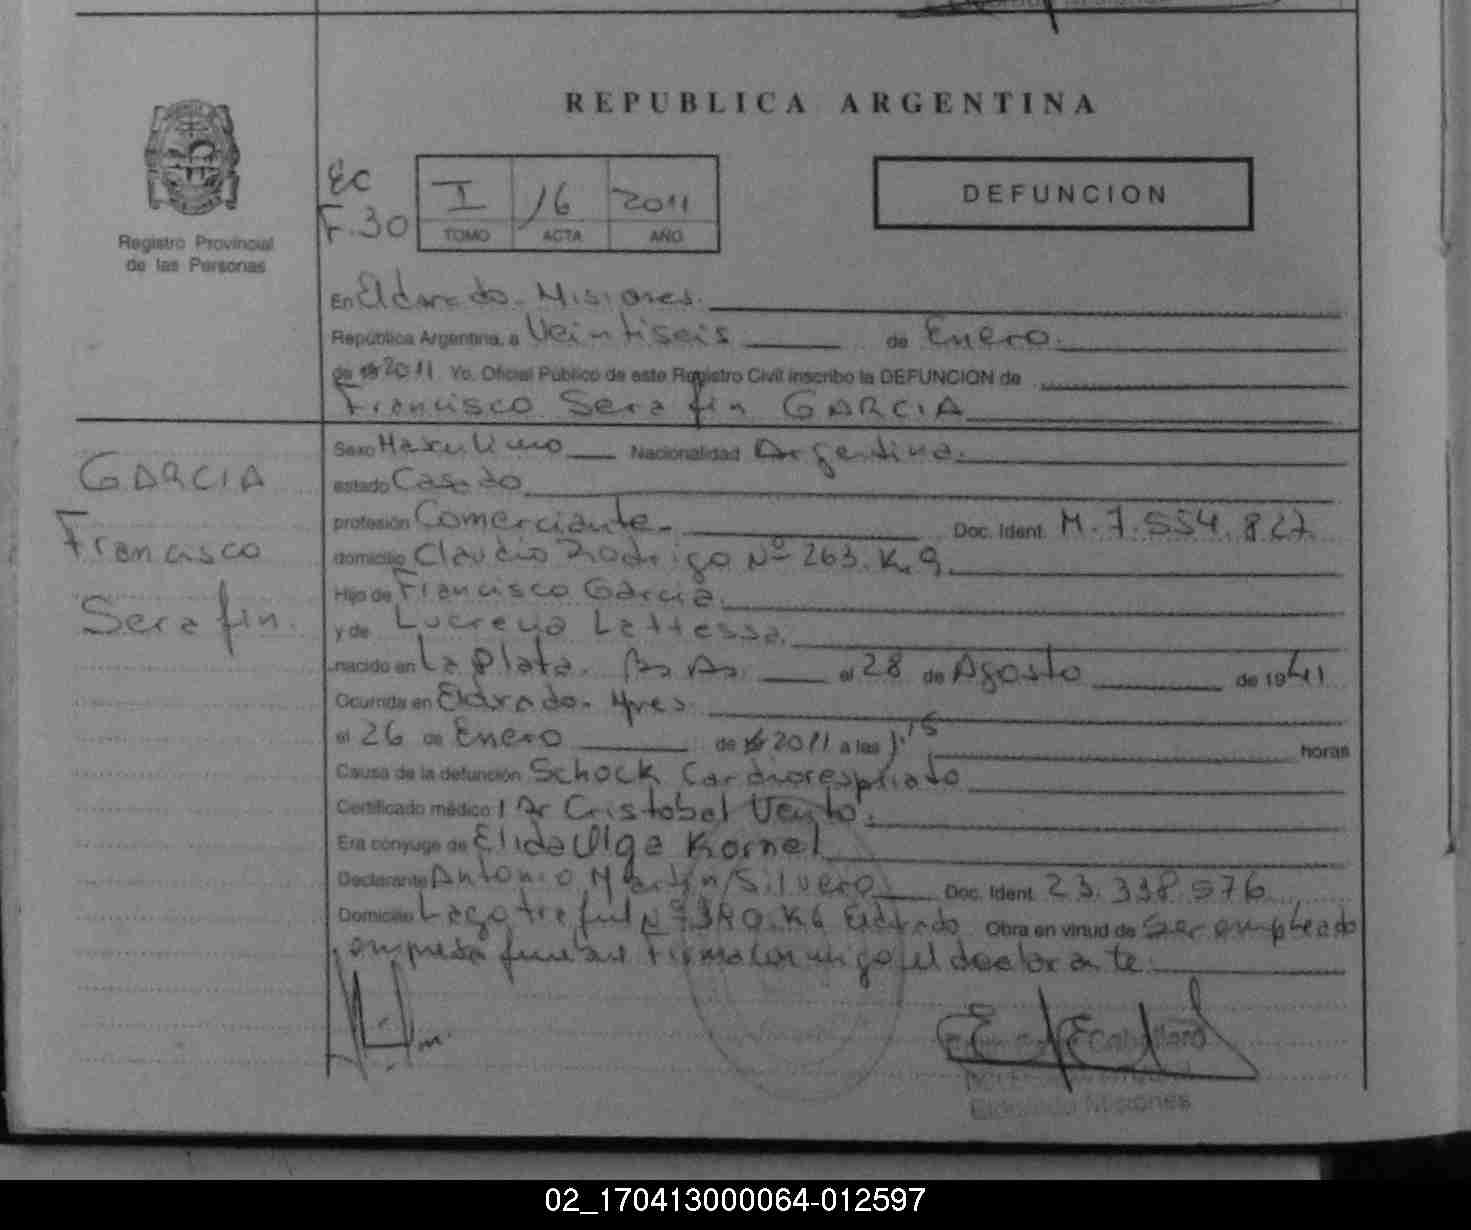 REPUBLICA ARGENTINA
Registro Provincial
de las Personas
EC
F.30
I 16 2011
TOMO ACTA AÑO
DEFUNCION
En Eldorado. Misiones.
República Argentina, a Veintiseis de Enero.
de 2011 Yo, Oficial Público de este Registro Civil inscribo la DEFUNCION de
Francisco Serafin GARCIA
GARCIA
Francisco
Serafin.
Sexo Masculino Nacionalidad Argentina.
estado Casado
profesión Comerciante. Doc. Ident. M.7.554.827
domicilio Claudio Rodrigo Nº 263. K.9
Hijo de Francisco Garcia.
y de Lucreya Lattessa.
nacido en La Plata. Bs As. el 28 de Agosto de 1941
Ocurrida en Eldorado. Mnes.
el 26 de Enero de 2011 a las 1:15 horas
Causa de la defunción Schock Cardiorespiriato
Certificado médico Dr Cristobal Vento.
Era cónyuge de Elida Olga Kornel
Declarante Antonio Martin Silvero Doc. Ident. 23.338.576
Domicilio Lago treful Nº 380. K6 Eldorado Obra en virtud de Ser empleado
empresa funebre firma conmigo el declarante.
Caballero
Eldorado Misiones
02_170413000064-012597